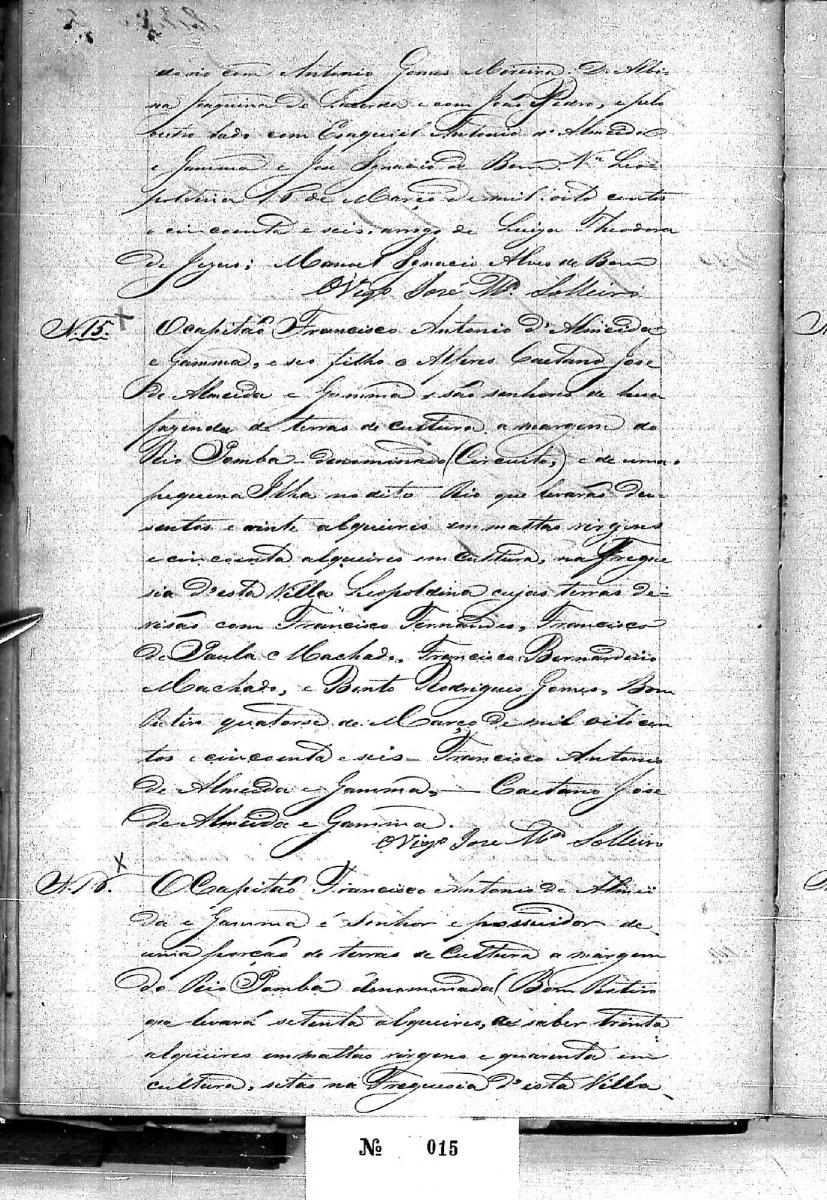 do rio com Antonio Gomes Moreira. D. Albi-
na Joaquina de Lacerda e com João Pedro, e pelo
outro lado com Esaquiel Antonio d'Almeida
e Gamma e Jose Ignacio de Bem. Vª Leo-
poldina 15 de Março de mil oito centos
e cincoenta e seis. arogo de Luiza Theodora
de Jezus; Manoel Ignacio Alves de Bem
O Vigº José Mª Solleiro
N. 15. X O capitão Francisco Antonio d'Almeida
e Gamma, e seo filho o Alferes Caetano Jose
de Almeida e Gamma são senhores de hua
fazenda de terras de cultura a margem do
Rio Pomba denominado (Circuito,) e de uma
pequena Ilha no dito Rio que levarão du-
sentos e vinte alqueires em mattas virgens
e cincoenta alqueires em cultura, na Fregue
sia d'esta Villa Leopoldina cujas terras de-
visão com Francisco Fernandes, Francisco
de Paula Machado, Francisco Bernardino
Machado, e Bento Rodrigues Gomes, Bom
Retiro quatorse de Março de mil oitocen
tos e cincoenta e seis - Francisco Antonio
de Almeida e Gamma, - Caetano Jose
de Almeida e Gamma.
O Vigº Jose Mª Solleiro
N. 16. X O Capitão Francisco Antonio de Almei
da e Gamma é senhor e possuidor de
uma porção de terras de Cultura a margem
do Rio Pomba denominada (Bom Retiro
que levará setenta alqueires, a saber trinta
alqueires em mattas virgens e quarenta em
cultura, setas na Freguesia d'esta Villa
Nº 015